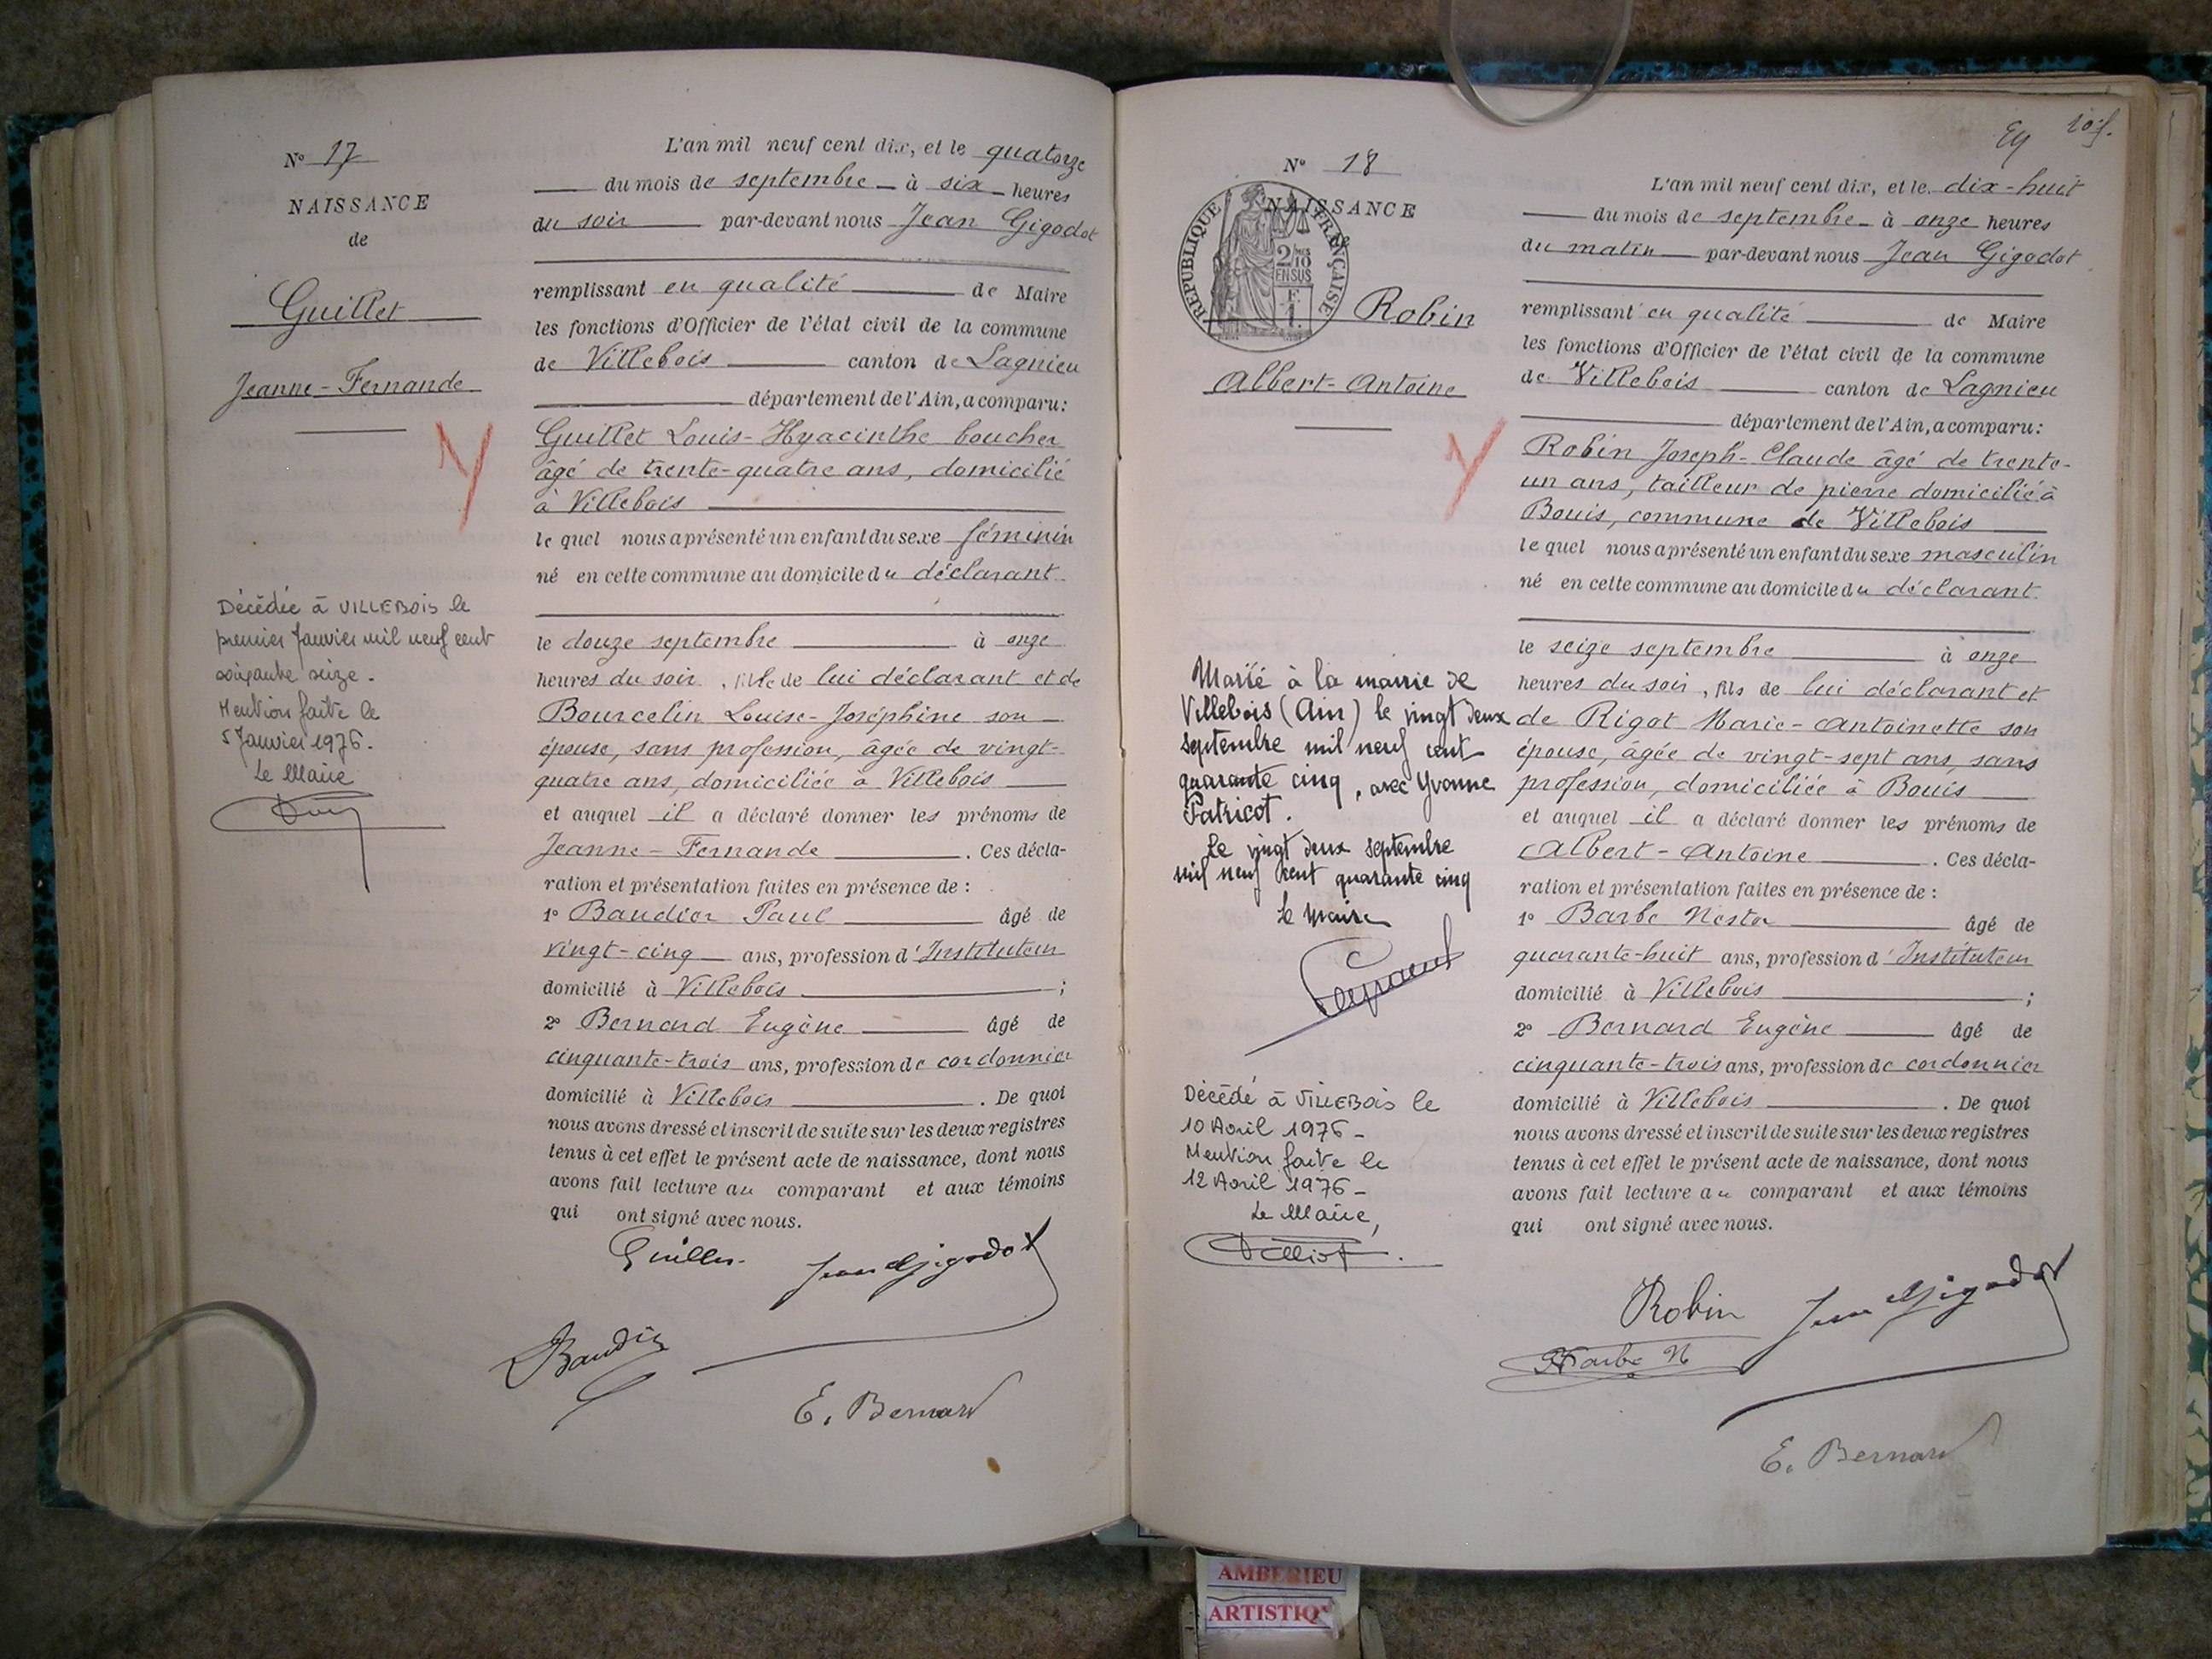 N° 17
NAISSANCE
de
Guillet
Jeanne-Fernande
Décédée à VILLEBOIS le
premier Janvier mil neuf cent
soixante seize.
Mention faite le
5 Janvier 1976.
Le Maire
L'an mil neuf cent dix, et le quatorze
du mois de septembre à six heures
du soir par-devant nous Jean Gigodot
remplissant en qualité de Maire
les fonctions d'Officier de l'état civil de la commune
de Villebois canton de Lagnieu
département de l'Ain, a comparu:
Guillet Louis-Hyacinthe boucher
âgé de trente-quatre ans, domicilié
à Villebois
le quel nous a présenté un enfant du sexe féminin
né en cette commune au domicile du déclarant
le douze septembre à onze
heures du soir, fille de lui déclarant et de
Bourcelin Louise-Joséphine son
épouse, sans profession, âgée de vingt-
quatre ans, domiciliée à Villebois
et auquel il a déclaré donner les prénoms de
Jeanne-Fernande. Ces décla-
ration et présentation faites en présence de :
1° Baudier Paul âgé de
vingt-cinq ans, profession d'Instituteur
domicilié à Villebois ;
2° Bernard Eugène âgé de
cinquante-trois ans, profession de cordonnier
domicilié à Villebois. De quoi
nous avons dressé et inscrit de suite sur les deux registres
tenus à cet effet le présent acte de naissance, dont nous
avons fait lecture au comparant et aux témoins
qui ont signé avec nous.
Guillet Jean Gigodot
E. Bernard
105.
N° 18
NAISSANCE
REPUBLIQUE FRANÇAISE
2/10
EN SUS
F.
1.
Robin
Albert-Antoine
Marié à la mairie de
Villebois (Ain) le vingt deux
septembre mil neuf cent
quarante cinq, avec Yvonne
Patricot.
Le vingt deux septembre
mil neuf cent quarante cinq
Le Maire
Décédé à VILLEBOIS le
10 Avril 1976-
Mention faite le
12 Avril 1976-
Le Maire,
L'an mil neuf cent dix, et le dix-huit
du mois de septembre à onze heures
du matin par-devant nous Jean Gigodot
remplissant en qualité de Maire
les fonctions d'Officier de l'état civil de la commune
de Villebois canton de Lagnieu
département de l'Ain, a comparu:
Robin Joseph-Claude âgé de trente-
un ans, tailleur de pierre domicilié à
Bouis, commune de Villebois
le quel nous a présenté un enfant du sexe masculin
né en cette commune au domicile du déclarant
le seize septembre à onze
heures du soir, fils de lui déclarant et
de Rigot Marie-Antoinette son
épouse, âgée de vingt-sept ans, sans
profession, domiciliée à Bouis
et auquel il a déclaré donner les prénoms de
Albert-Antoine. Ces décla-
ration et présentation faites en présence de :
1° Barbe Nestor âgé de
quarante-huit ans, profession d'Instituteur
domicilié à Villebois ;
2° Bernard Eugène âgé de
cinquante-trois ans, profession de cordonnier
domicilié à Villebois. De quoi
nous avons dressé et inscrit de suite sur les deux registres
tenus à cet effet le présent acte de naissance, dont nous
avons fait lecture au comparant et aux témoins
qui ont signé avec nous.
Robin Jean Gigodot
Barbe N
E. Bernard
AMBERIEU
ARTISTIQ